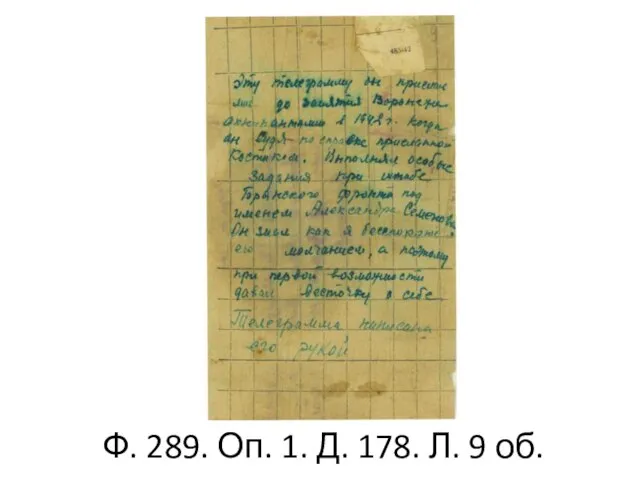 Эту телеграмму он прислал
мне до занятия Воронежа
оккупантами в 1942 г. когда
он судя по справке присланной
Костиком. Выполнял особые
задания при штабе
Брянского фронта под
именем Александра Семенова
Он знал как я беспокоюсь
его молчанием, а поэтому
при первой возможности
давал весточку о себе
Телеграмма написана
его рукой
Ф. 289. Оп. 1. Д. 178. Л. 9 об.